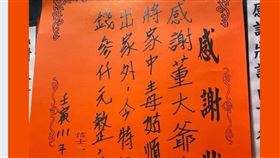 感謝
感謝董大爺
將家中毒蛄順
出家外，今特
錢參仟元整
信士
壬寅111年